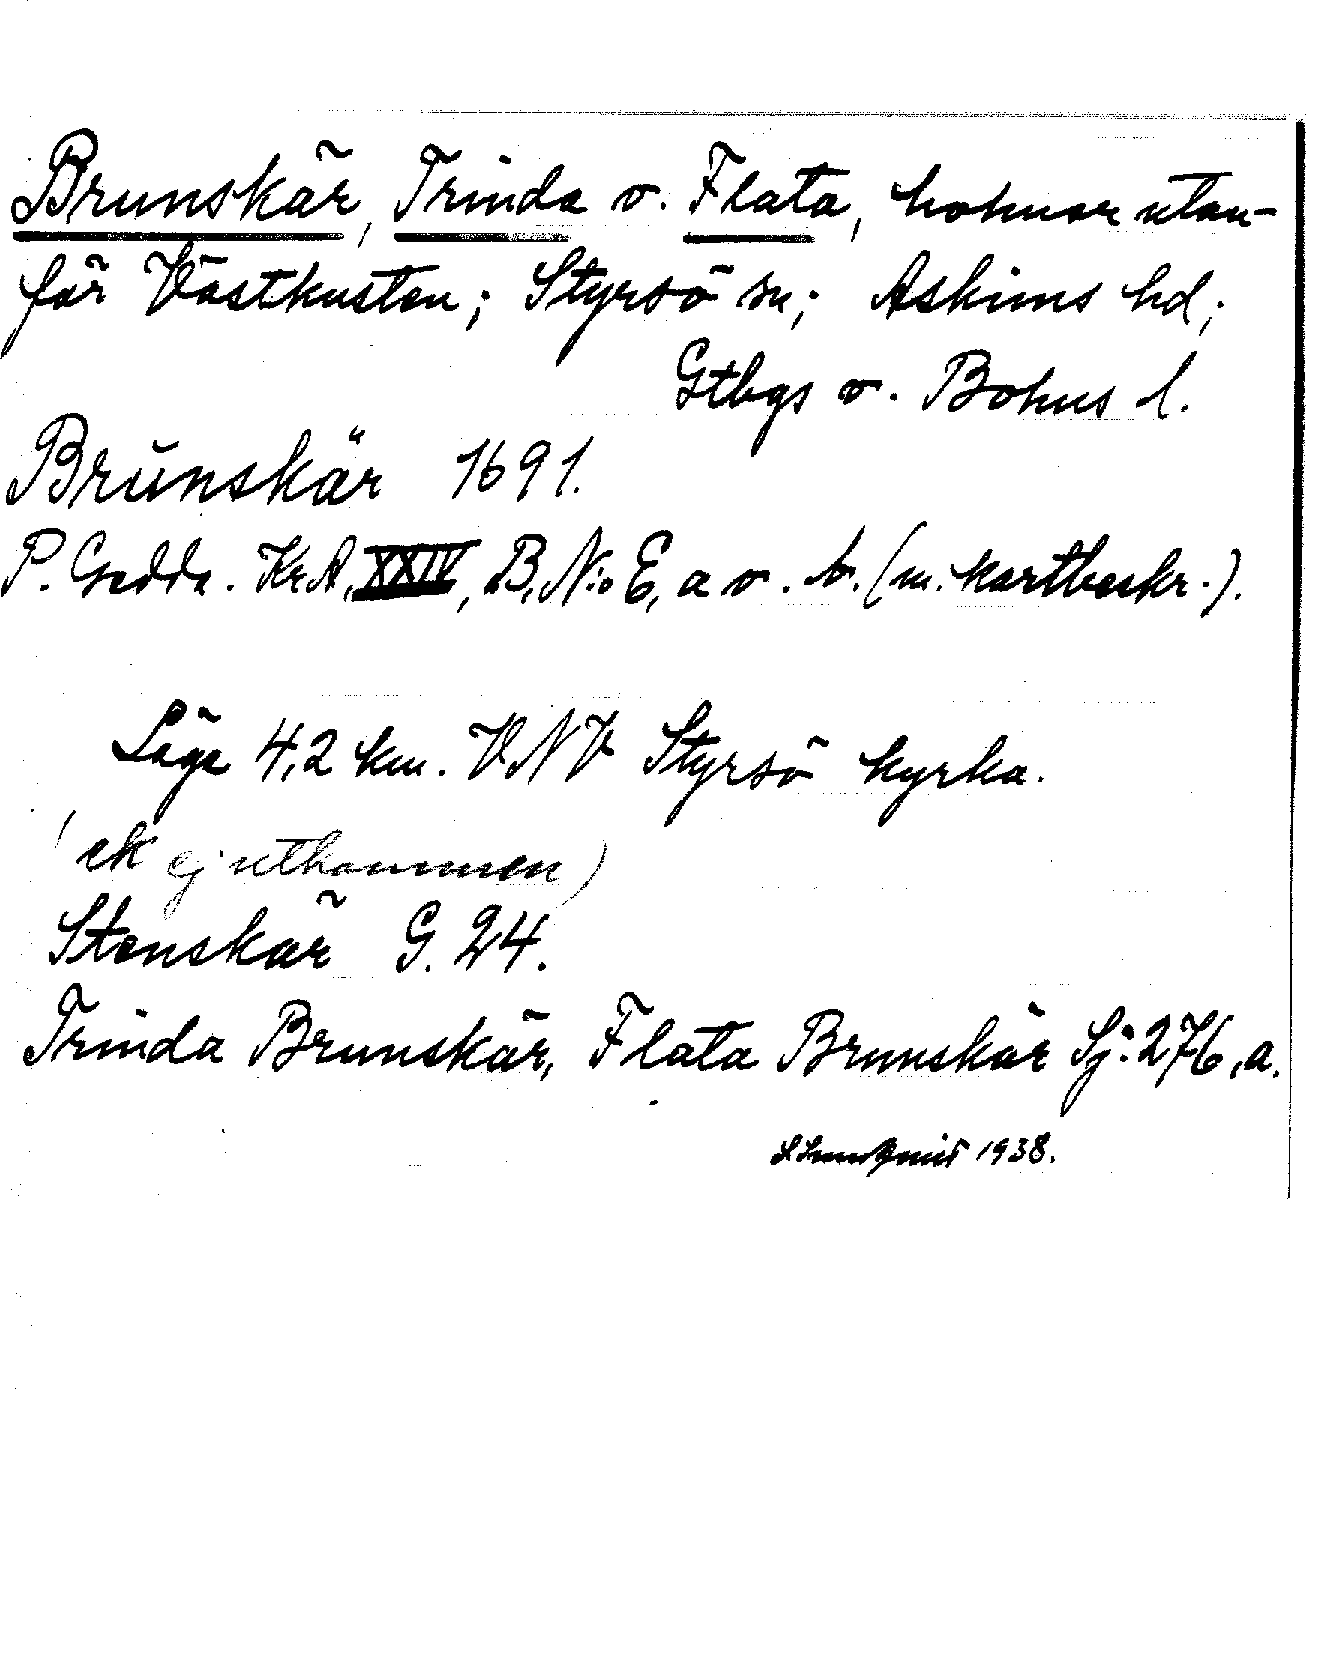 Brunskär, Trinda o. Flata, holmar utan-
för Västkusten; Styrsö sn; Askims hd;
Gtbgs o. Bohus l.
Brŭnskär 1691.
P. Gedda. Kr.A, XXIV, B, N:o E, a o. b. (m. kartbeskr.).
Läge 4,2 km. VNV Styrsö kyrka.
(ek ej utkommen)
Stenskär G. 24.
Trinda Brunskär, Flata Brunskär Sj: 276, a.
1938.